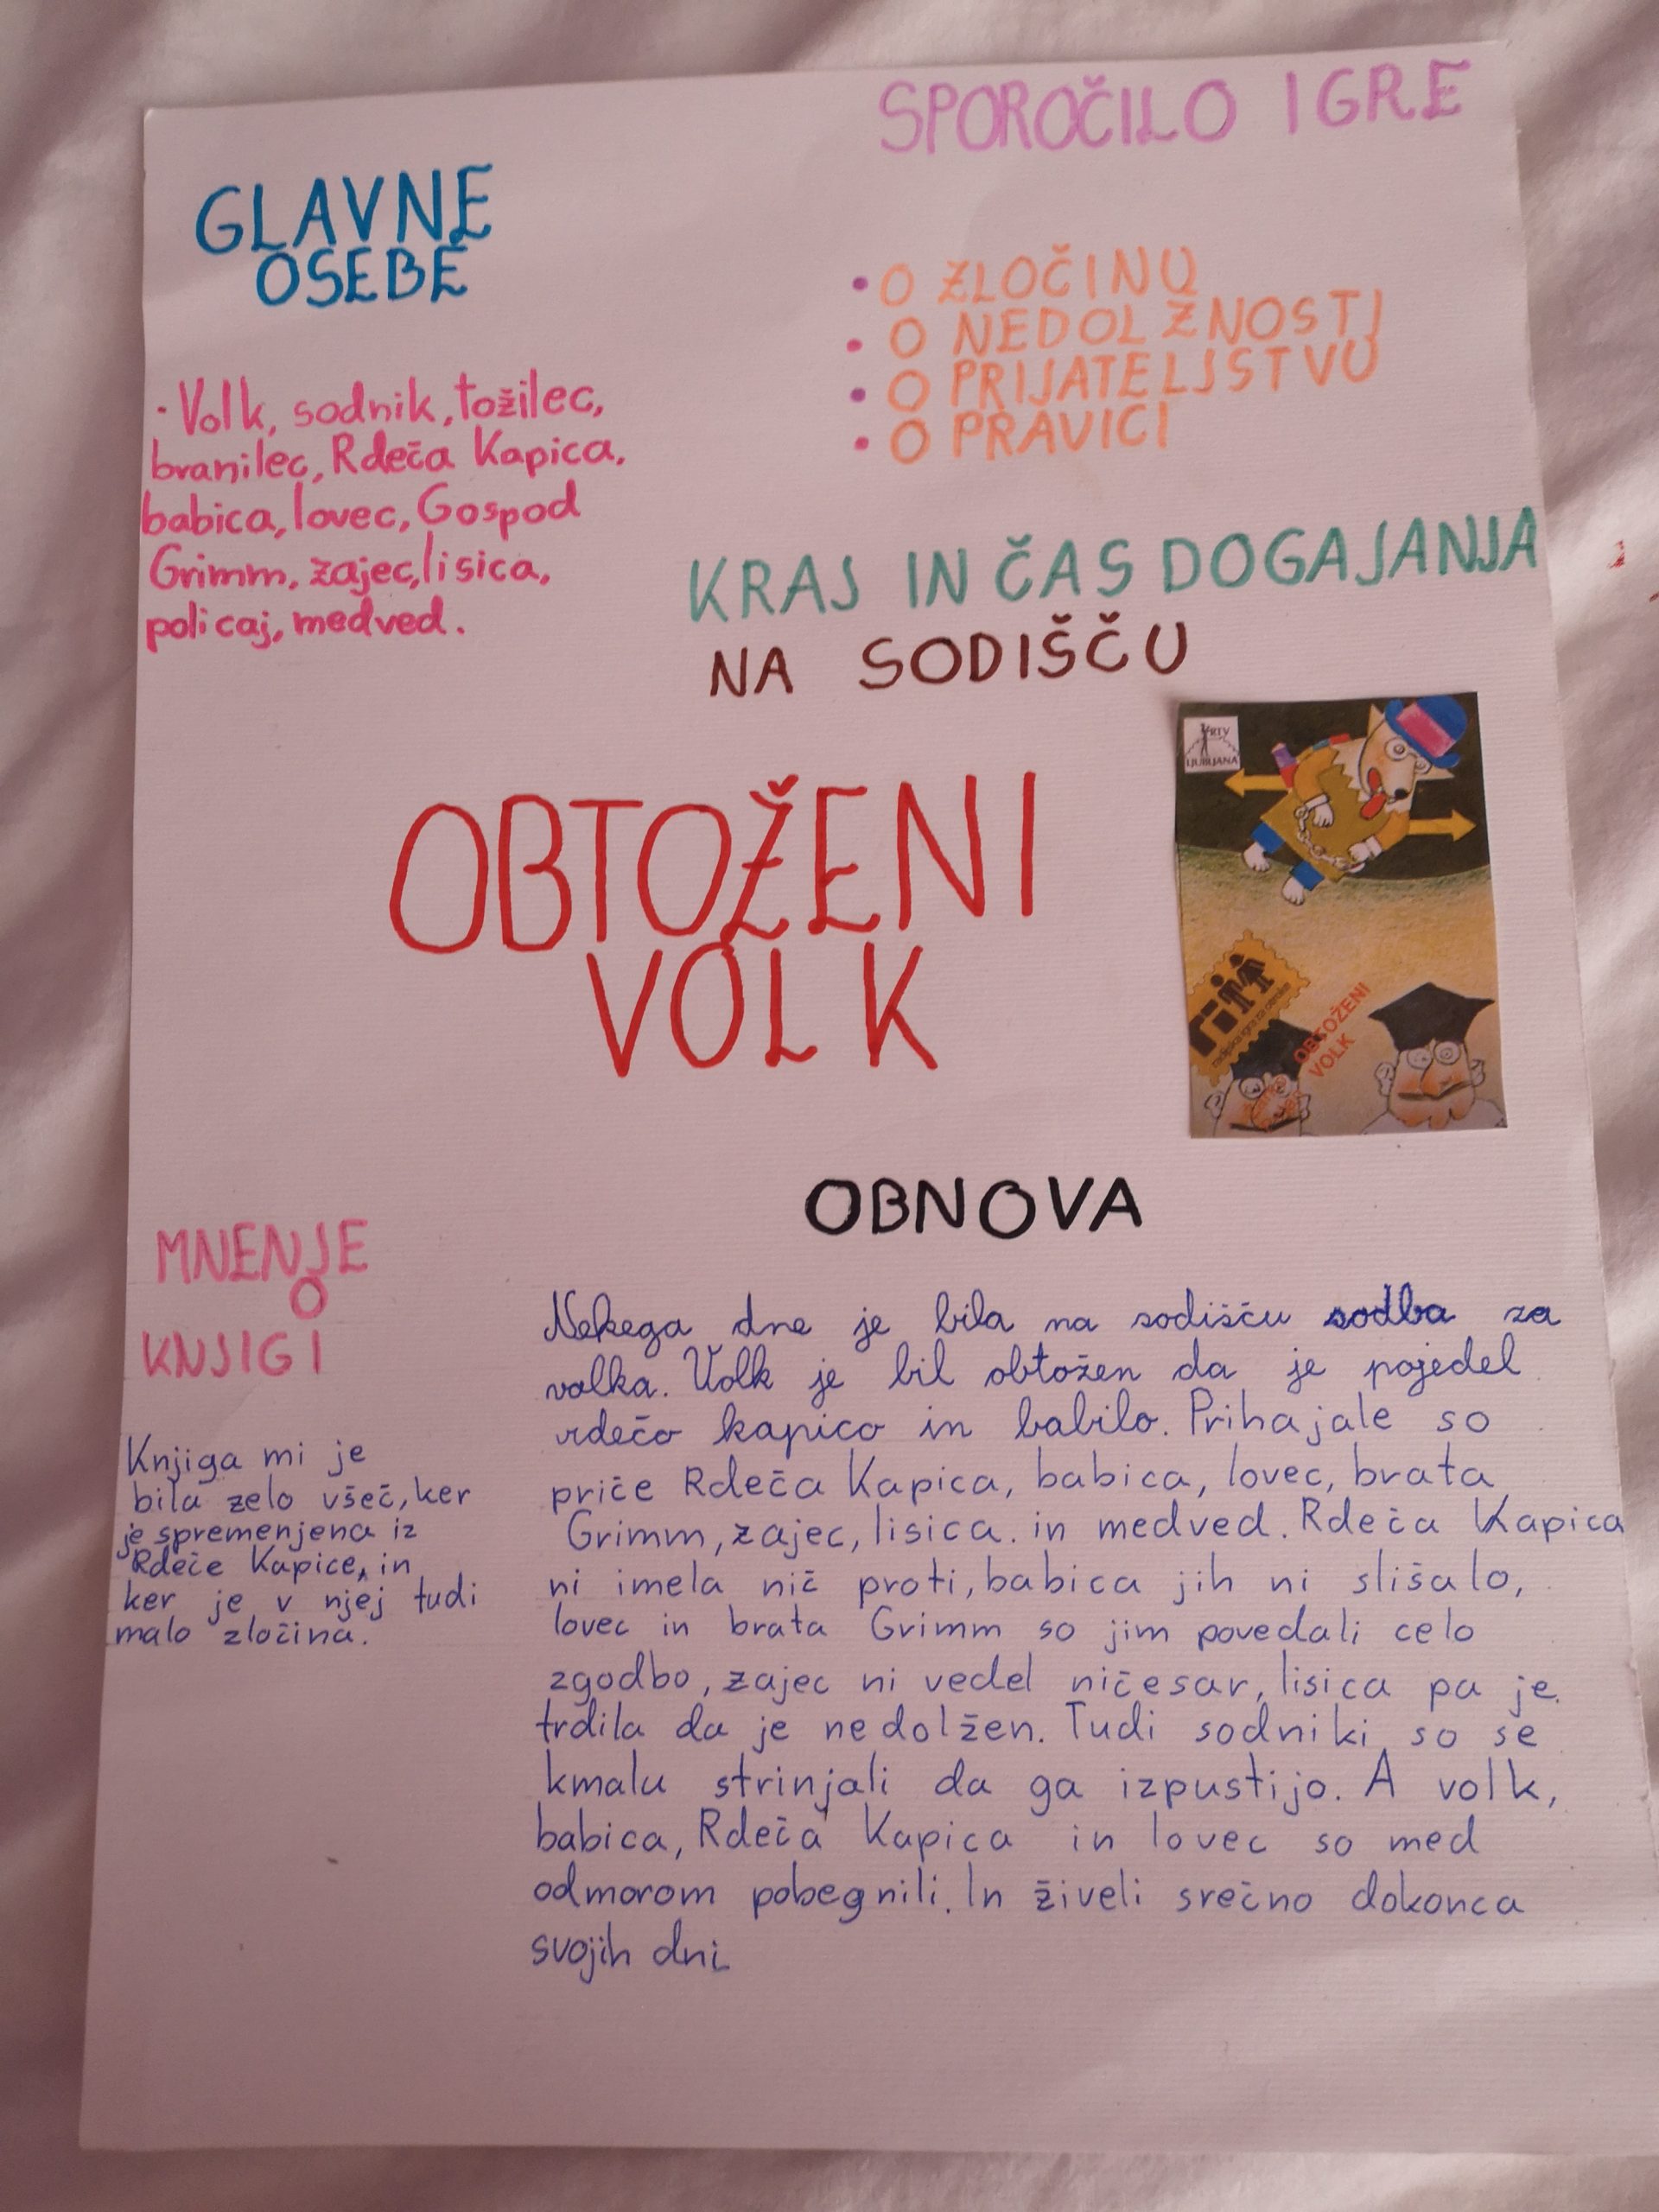 SPOROČILO IGRE
GLAVNE
OSEBE
• O ZLOČINU
• O NEDOLŽNOSTI
• O PRIJATELJSTVU
• O PRAVICI
· Volk, sodnik, tožilec,
branilec, Rdeča Kapica,
babica, lovec, Gospod
Grimm, zajec, lisica,
policaj, medved.
KRAJ IN ČAS DOGAJANJA
NA SODIŠČU
OBTOŽENI
VOLK
RTV
LJUBLJANA
radijska igra za otroke
OBTOŽENI
VOLK
OBNOVA
Nekega dne je bila na sodišču sodba za
volka. Volk je bil obtožen da je pojedel
rdečo kapico in babilo. Prihajale so
priče Rdeča Kapica, babica, lovec, brata
Grimm, zajec, lisica. in medved. Rdeča Kapica
ni imela nič proti, babica jih ni slišalo,
lovec in brata Grimm so jim povedali celo
zgodbo, zajec ni vedel ničesar, lisica pa je
trdila da je nedolžen. Tudi sodniki so se
kmalu strinjali da ga izpustijo. A volk,
babica, Rdeča Kapica in lovec so med
odmorom pobegnili. In živeli srečno dokonca
svojih dni
MNENJE
O
KNJIGI
Knjiga mi je
bila zelo všeč, ker
je spremenjena iz
Rdeče Kapice, in
ker je v njej tudi
malo zločina.